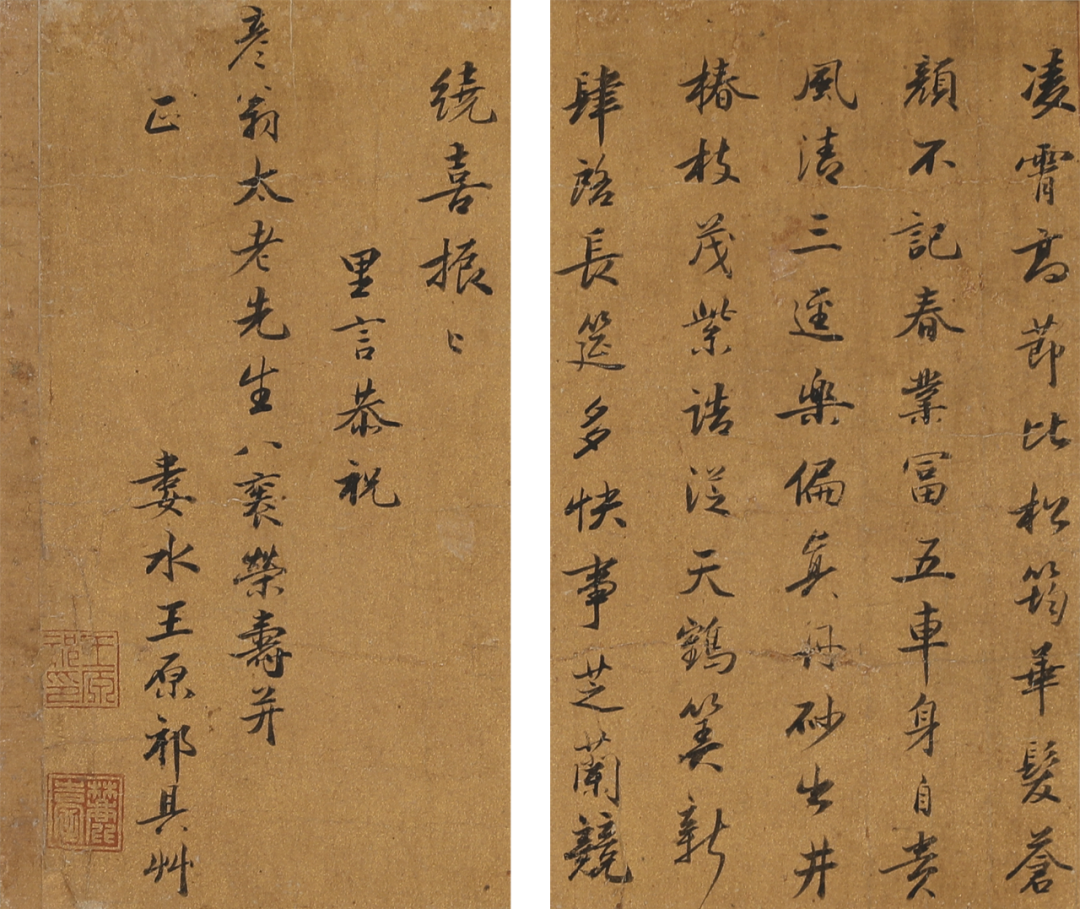 凌霄高節比松筠華髮蒼
顏不記春業富五車身自貴
風清三逕樂偏真丹砂出井
椿枝茂紫誥從天鶴筭新
肆啓長筵多快事芝蘭競
繞喜振〻
里言恭祝
彥翁太老先生八袠榮壽并
正
婁水王原祁具艸
王原祁印
麓臺